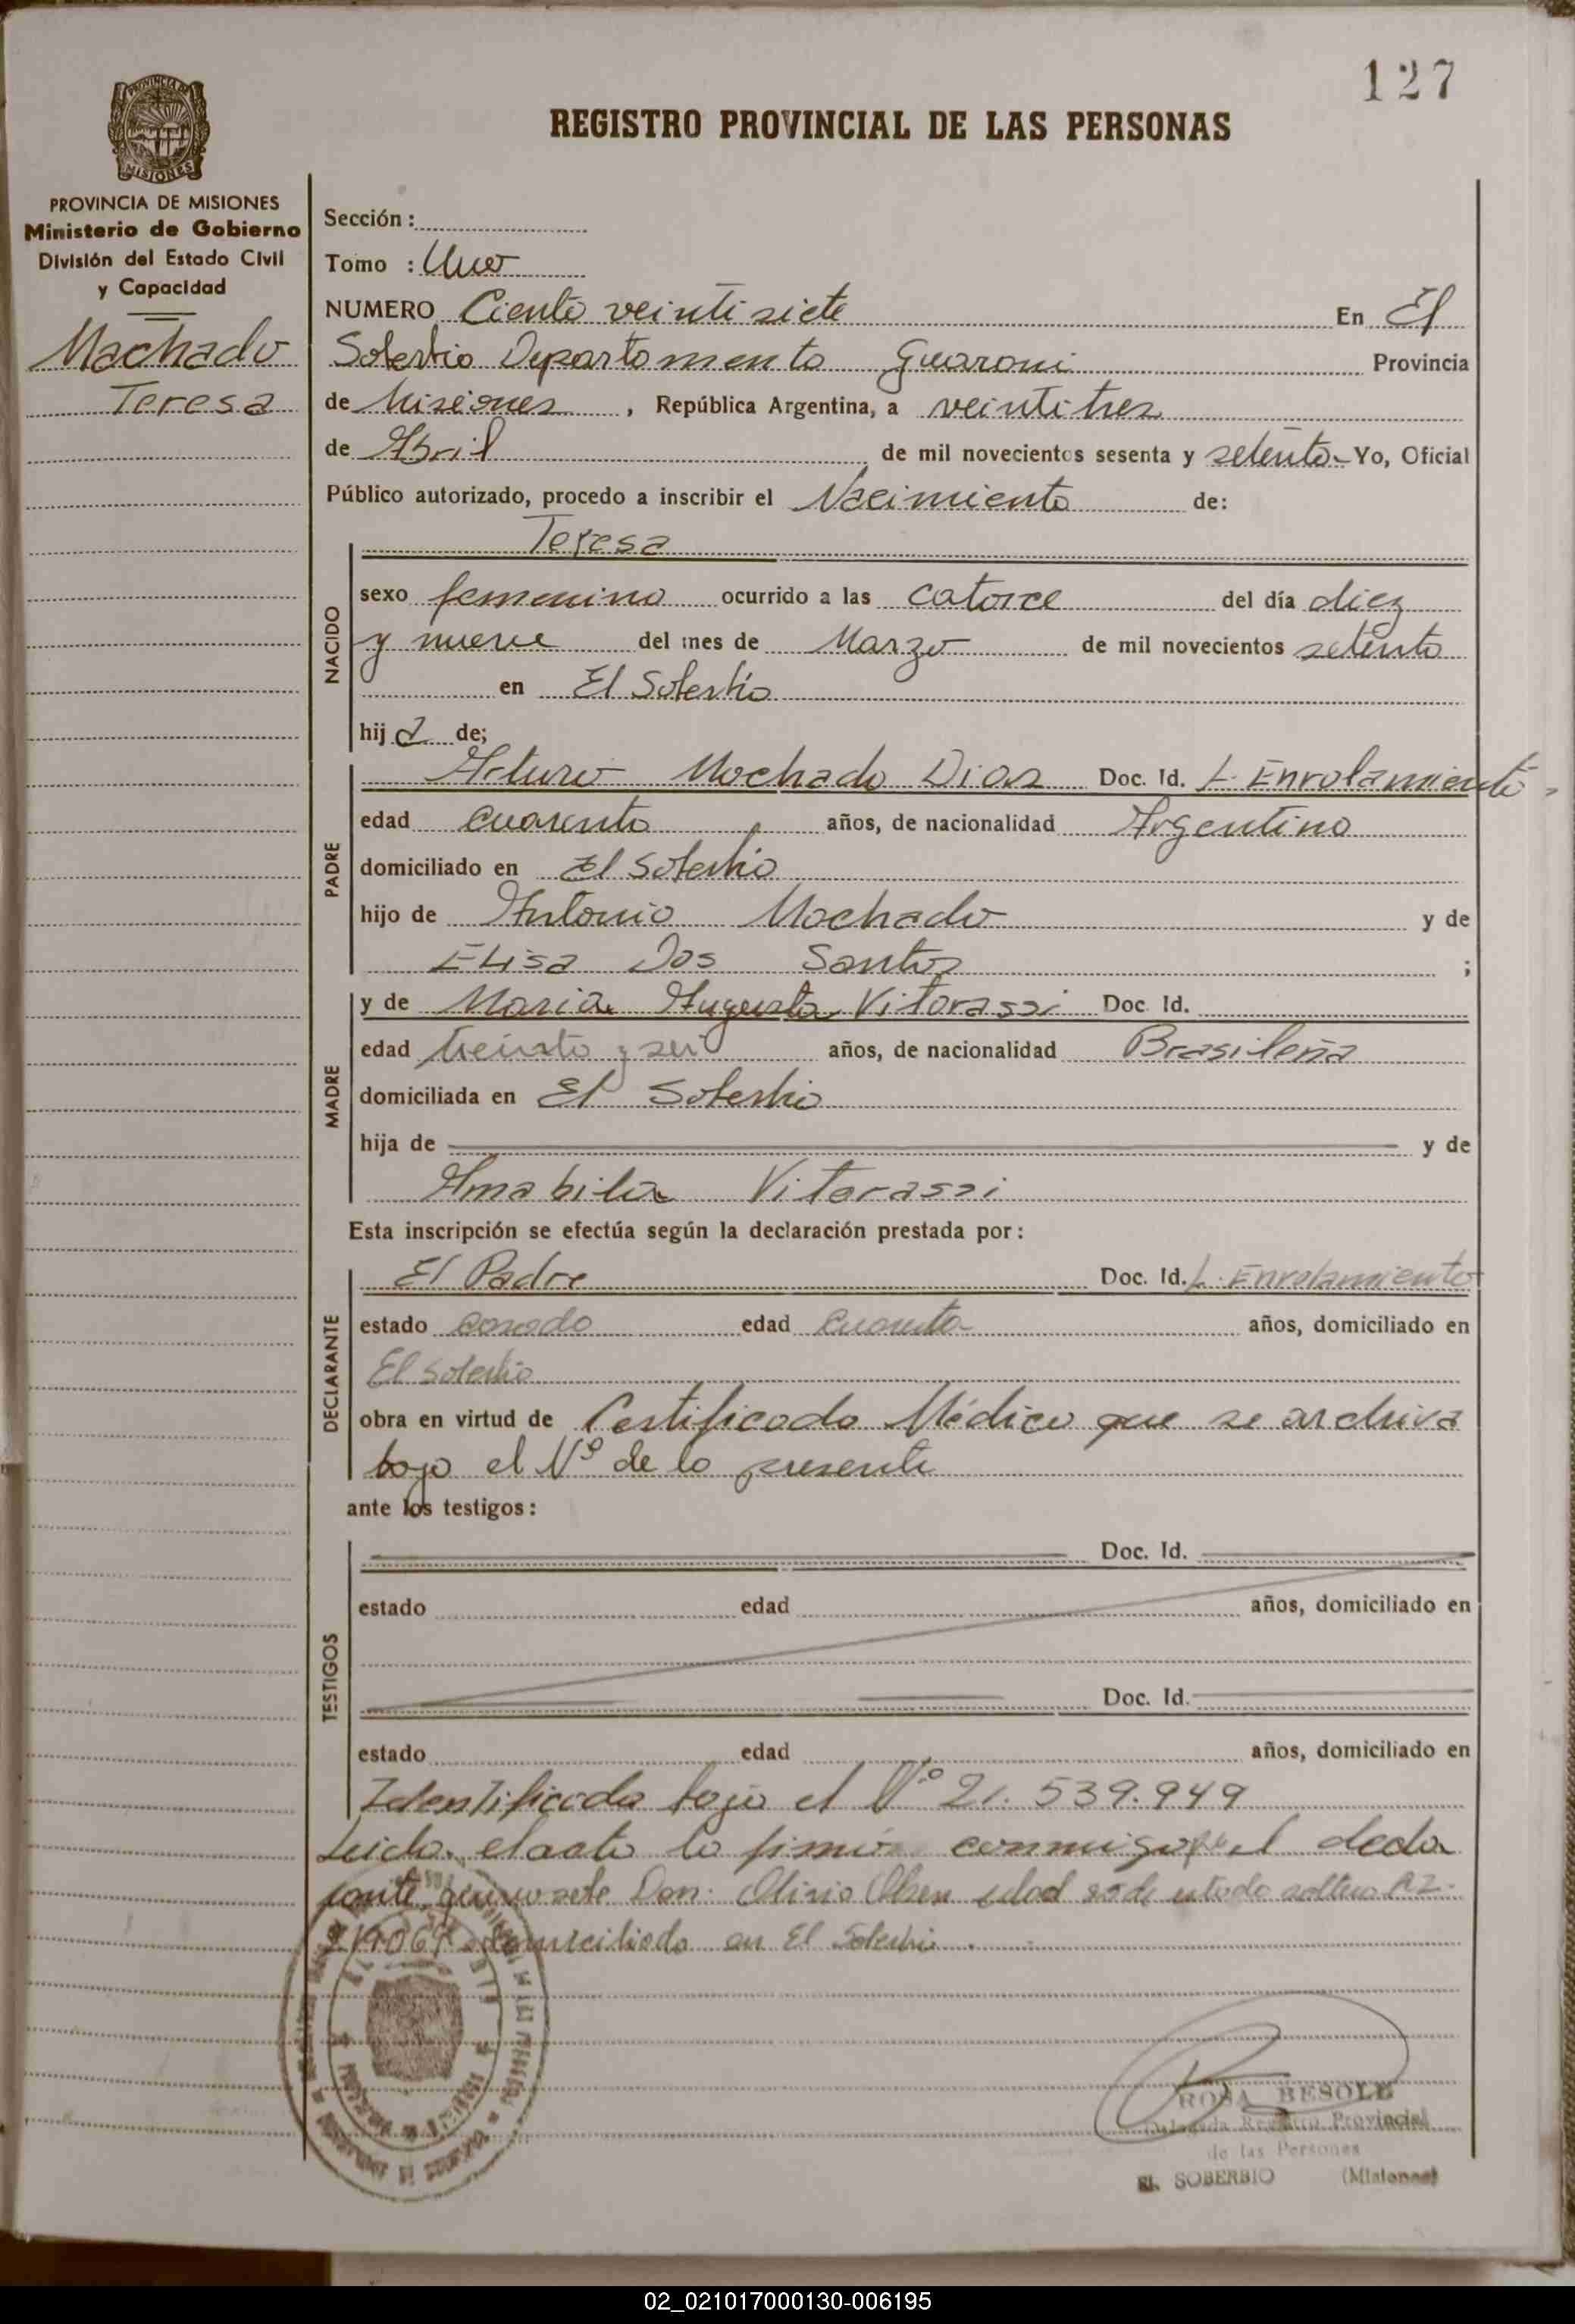 127
REGISTRO PROVINCIAL DE LAS PERSONAS
PROVINCIA DE MISIONES
Ministerio de Gobierno
División del Estado Civil
y Capacidad
Machado
Teresa
Sección :
Tomo : Uno
NUMERO Ciento veinti siete En El
Soberbio Departamento Guarani Provincia
de Misiones , República Argentina, a veinti tres
de Abril de mil novecientos sesenta y setenta - Yo, Oficial
Público autorizado, procedo a inscribir el Nacimiento de:
Teresa
NACIDO
sexo femenino ocurrido a las catorce del día diez
y nueve del mes de Marzo de mil novecientos setenta
en El Soberbio
hij a de;
PADRE
Arturo Machado Dias Doc. Id. L. Enrolamiento
edad cuarenta años, de nacionalidad Argentino
domiciliado en El Soberbio
hijo de Antonio Machado y de
Elisa Dos Santos ;
MADRE
y de Maria Augusta Vitorassi Doc. Id.
edad treinta y seis años, de nacionalidad Brasileña
domiciliada en El Soberbio
hija de y de
Amabilia Vitorassi
Esta inscripción se efectúa según la declaración prestada por :
DECLARANTE
El Padre Doc. Id. L. Enrolamiento
estado casado edad cuarenta años, domiciliado en
El Soberbio
obra en virtud de Certificado Médico que se archiva
bajo el Nº de la presente
ante los testigos :
TESTIGOS
Doc. Id.
estado edad años, domiciliado en
Doc. Id.
estado edad años, domiciliado en
Identificada bajo el Nº 21.539.949
Leido el acto la firma conmigo el decla
rante Don. edad estado soltero
domiciliado en El Soberbio.
ROSA BESOLD
Delegada Registro Provincial
de las Personas
EL SOBERBIO (Misiones)
02_021017000130-006195